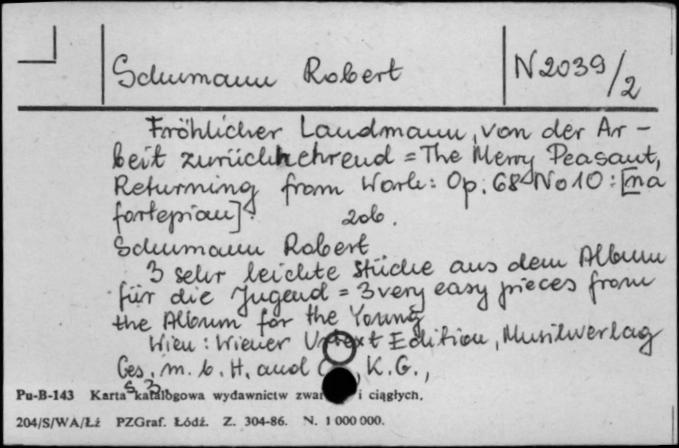 Schumann Robert
N 2039/2
Fröhlicher Landmann, von der Ar-
beit zurückkehrend = The Merry Peasant,
Returning from Work: Op. 68 No 10: [na
fortepian]. zob.
Schumann Robert
3 sehr leichte Stücke aus dem Album
für die Jugend = 3 very easy pieces from
the Album for the Young
Wien: Wiener Urtext Edition, Musikverlag
Ges. m. b. H. and K.G.,
s. 3
Pu-B-143 Karta katalogowa wydawnictw zwar i ciągłych.
204/S/WA/Łż PZGraf. Łódź. Z. 304-86. N. 1 000 000.